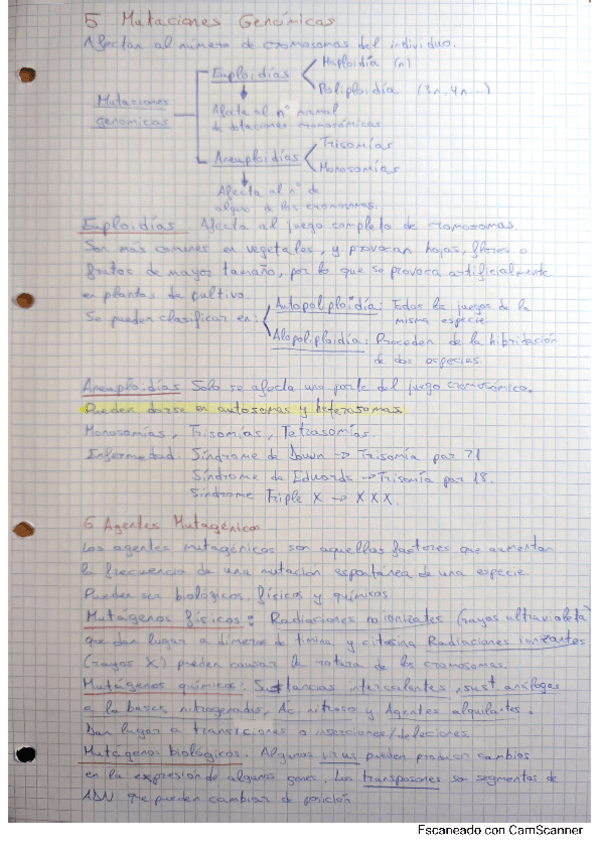 5 Mutaciones Genómicas
Afectan al número de cromosomas del individuo.
Mutaciones genómicas
Euploidías
Haploidía (n)
Poliploidía (3n, 4n...)
Afecta al nº normal
de dotaciones cromosómicas
Aneuploidías
Trisomías
Monosomías
Afecta al nº de
alguno de los cromosomas.
Euploidías Afecta al juego completo de cromosomas.
Son más comunes en vegetales, y provocan hojas, flores o
frutos de mayor tamaño, por lo que se provoca artificialmente
en plantas de cultivo.
Se pueden clasificar en:
Autopoliploidía: Todos los juegos de la
misma especie.
Alopoliploidía: Proceden de la hibridación
de dos especies.
Aneuploidías Solo se afecta una parte del juego cromosómico.
Pueden darse en autosomas y heterosomas
Monosomías, Trisomías, Tetrasomías.
Enfermedad: Síndrome de Down -> Trisomía par 21
Síndrome de Edwards -> Trisomía par 18.
Síndrome Triple X -> XXX.
6 Agentes Mutagénicos
Los agentes mutagénicos son aquellos factores que aumentan
la frecuencia de una mutación espontánea de una especie.
Pueden ser biológicos, físicos y químicos.
Mutágenos físicos: Radiaciones no ionizantes (rayos ultravioleta)
que dan lugar a dímeros de timina y citosina Radiaciones ionizantes
(rayos X) pueden causar la rotura de los cromosomas.
Mutágenos químicos: Sustancias intercalantes, sust análogas
a la bases nitrogenadas, Ac nitroso y Agentes alquilantes.
Dan lugar a transiciones o inserciones/deleciones.
Mutágenos biológicos. Algunos virus pueden producir cambios
en la expresión de algunos genes. Los transposones son segmentos de
ADN que pueden cambiar de posición
Escaneado con CamScanner